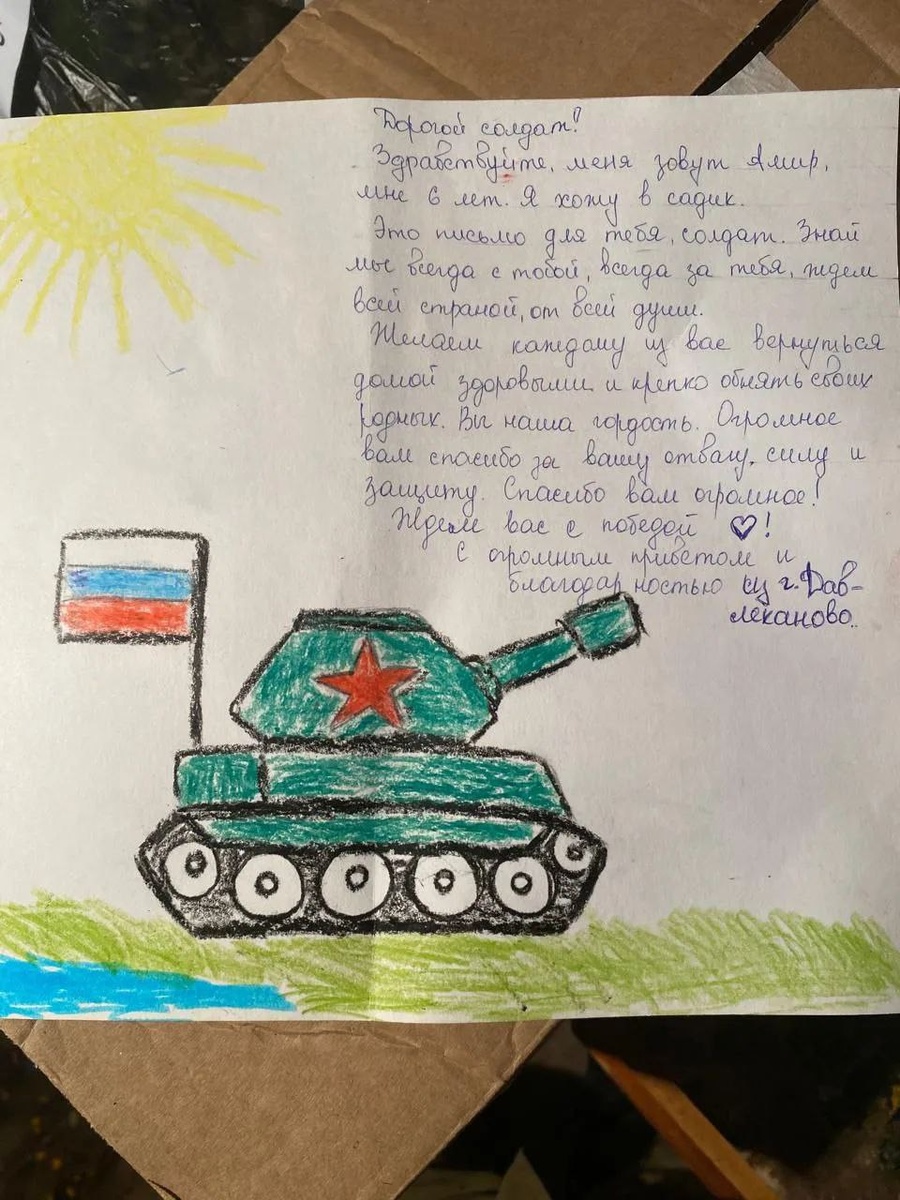 Дорогой солдат!
Здравствуйте, меня зовут Амир,
мне 6 лет. Я хожу в садик.
Это письмо для тебя, солдат. Знай
мы всегда с тобой, всегда за тебя, ждем
всей страной, от всей души.
Желаем каждому из вас вернуться
домой здоровыми и крепко обнять своих
родных. Вы наша гордость. Огромное
вам спасибо за вашу отвагу, силу и
защиту. Спасибо вам огромное!
Ждем вас с победой ♡!
С огромным приветом и
благодарностью из г. Дав-
леканово.